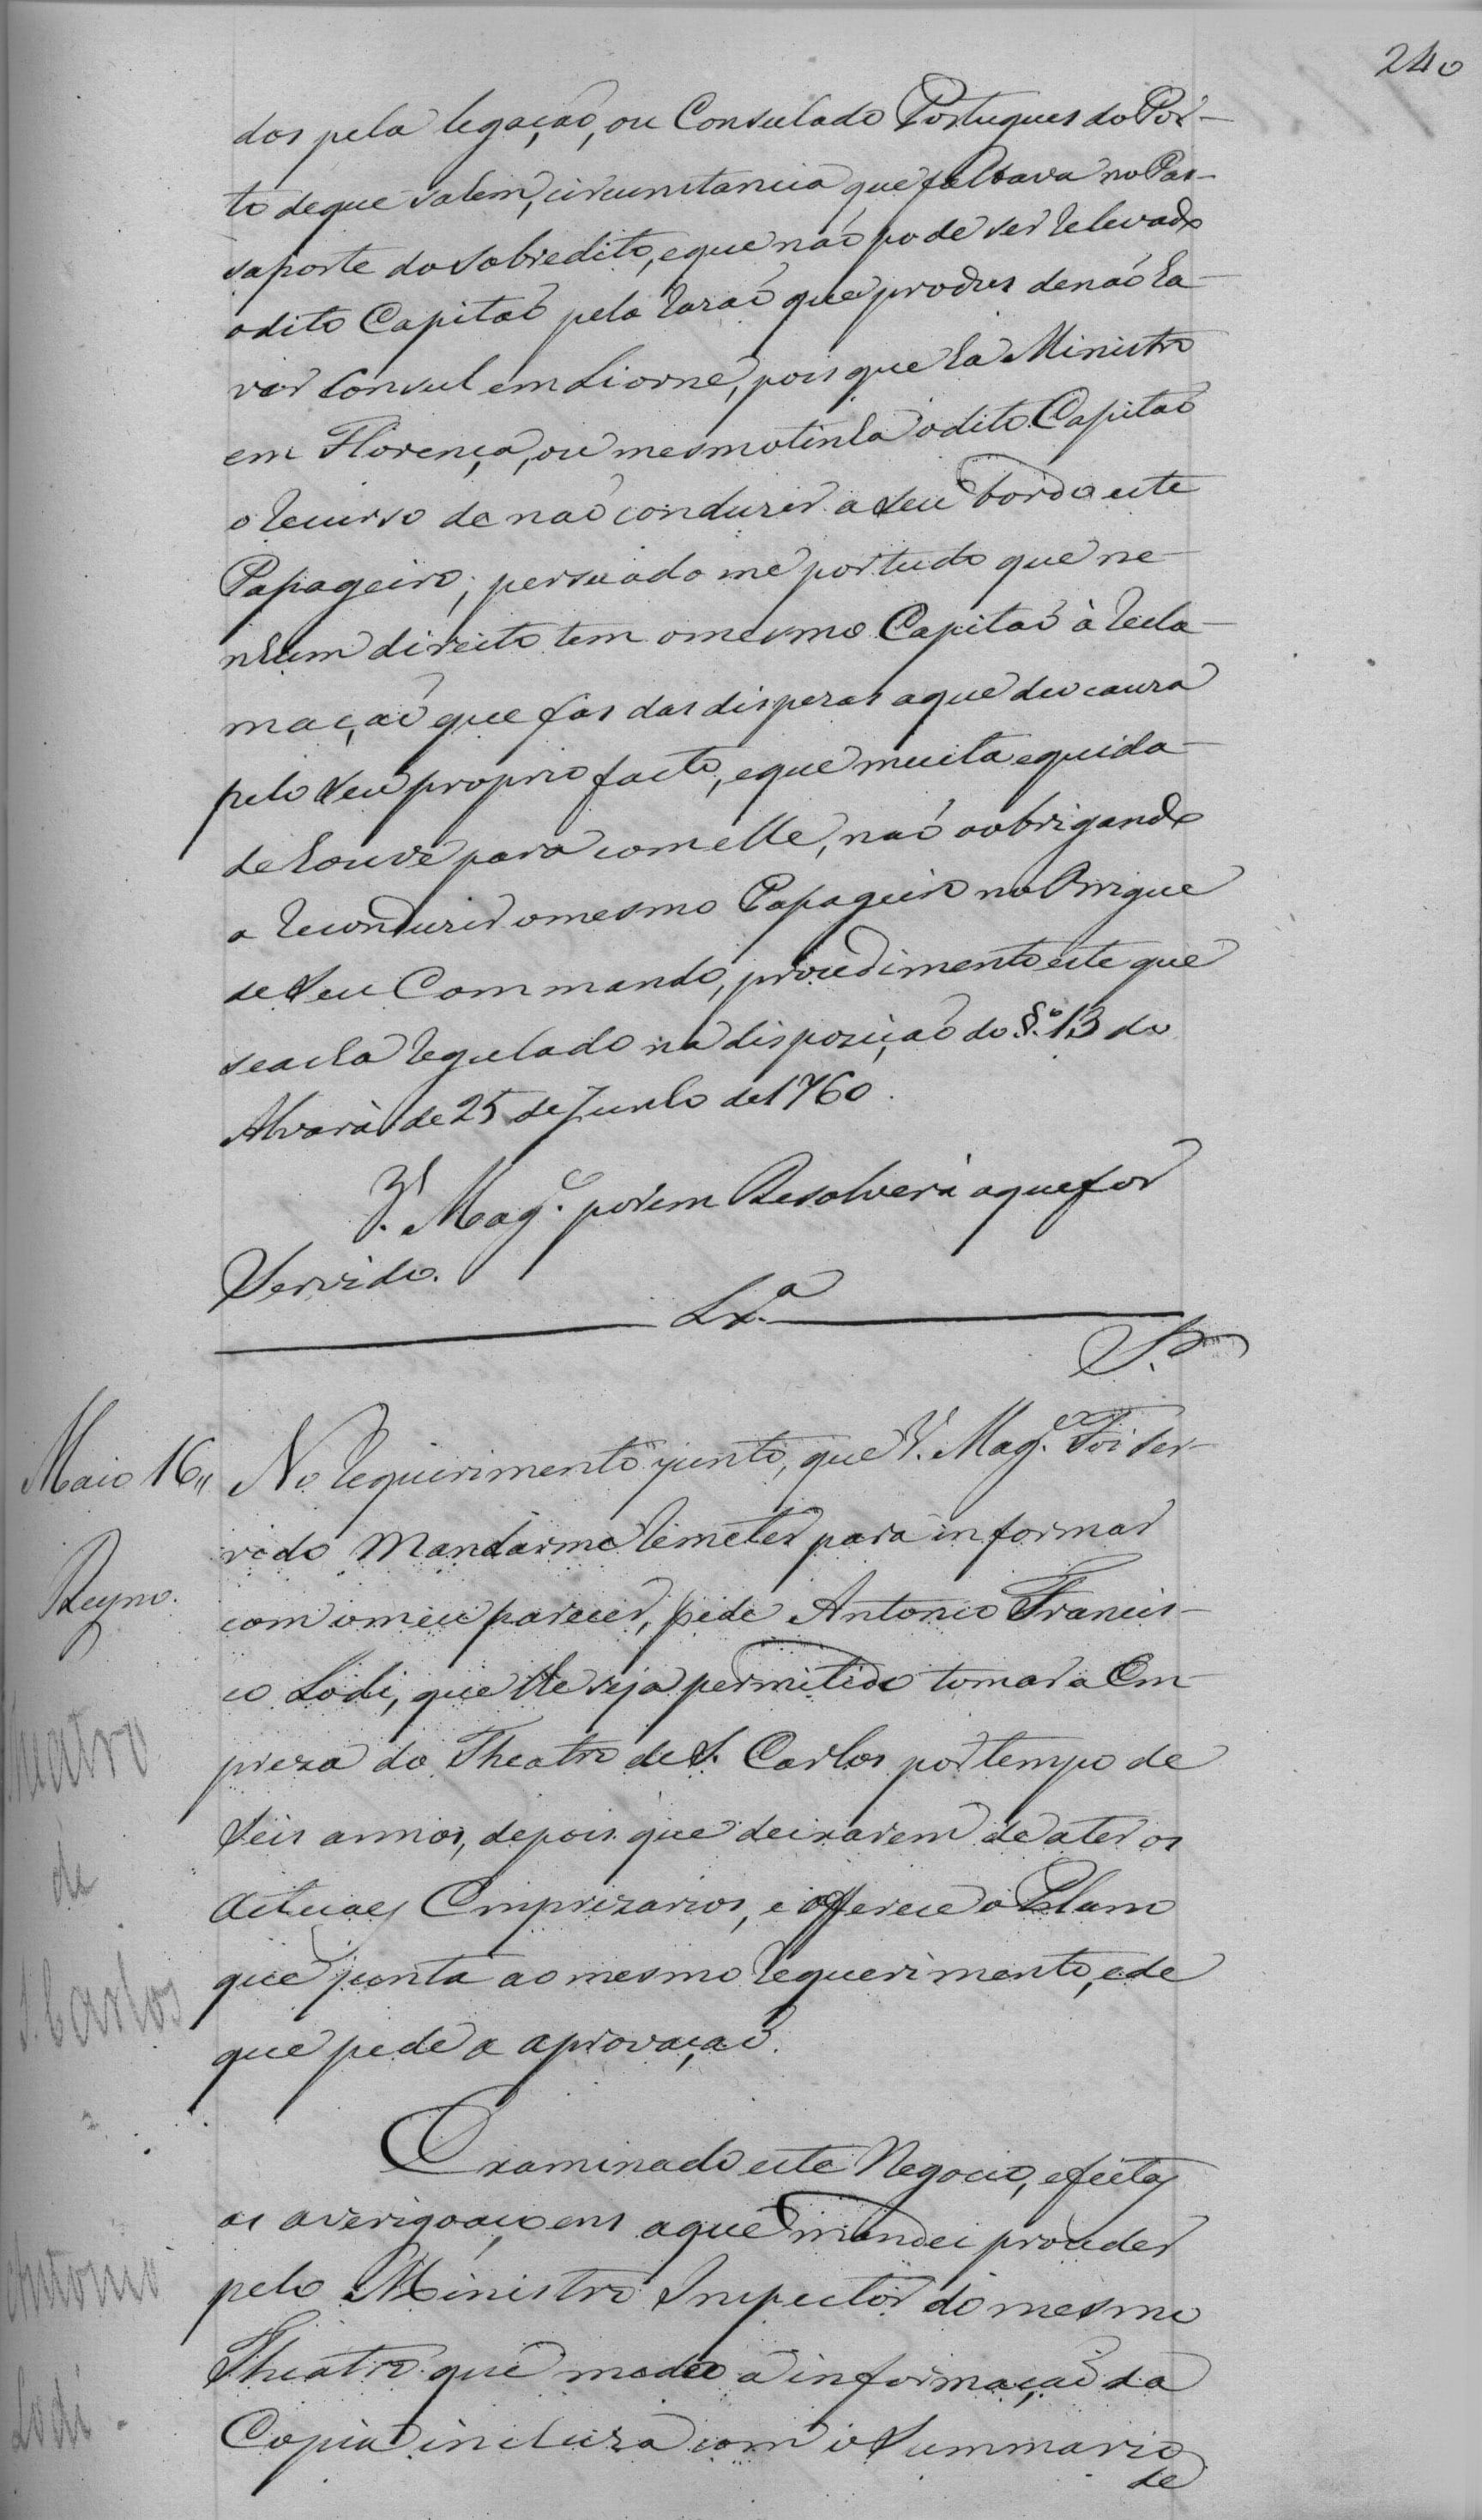 240
dos pela legaçaõ, ou Consulado Portugues do Por-
to de que sahem, circunstancia que faltava no Pas-
saporte do sobredito, e que naõ pode ser relevado
o dito Capitaõ pela razaõ que produs de naõ ha-
ver Consul em Liorne, pois que ha Ministro
em Florença, ou mesmo tinha o dito Capitaõ
o recurso de naõ conduzir a seu bordo este
Passageiro; persuado me por tudo que ne-
nhum direito tem o mesmo Capitaõ à recla-
maçaõ que fas das dispezas a que deo cauza
pelo seu proprio facto, e que muita equida-
de houve para com elle, naõ o obrigando
a reconduzir o mesmo Passageiro no Brigue
de seu Commando, procedimento este que
se acha regulado na disposiçaõ do §.º 13 do
Alvarà de 25 de Junho de 1760.
V. Mag.e porem Resolverà o que for
Servido.
Lx.a
S.or
Maio 16,, No requerimento junto, que V. Mag.e Foi ser-
vido Mandarme remeter para informar
Reyno. com o meu parecer, pede Antonio Francis-
co Lodi, que lhe seja permitido tomar a Em-
preza do Theatro de S. Carlos por tempo de
Theatro
seis annos, depois que deixarem de a ter os
de
Actuaes Emprezarios, e offerece o Plano
que junta ao mesmo requerimento, e de
S. Carlos
que pede a aprovaçaõ.
Examinado este Negocio, e feitas
as averigoaçoens a que mandei proceder
Antonio
pelo Ministro Inspector do mesmo
Theatro que me deo a informaçaõ da
Lodi.
Copia incluza com o Summario
de